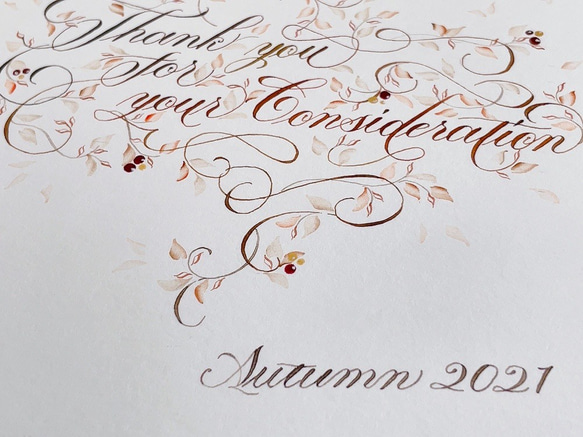 Thank you
for
your Consideration
Autumn 2021